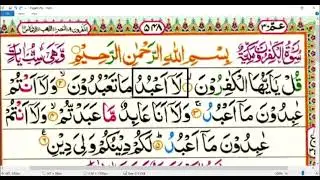 عم ۳۰ ۵۴۸
سُوْرَةُ الْكٰفِرُوْنَ مَكِّيَّةٌ بِسْمِ اللّٰهِ الرَّحْمٰنِ الرَّحِيْمِ وَهِيَ سِتُّ اٰيَاتٍ
قُلْ يٰۤاَيُّهَا الْكٰفِرُوْنَ لَاۤ اَعْبُدُ مَا تَعْبُدُوْنَ وَلَاۤ اَنْتُمْ
عٰبِدُوْنَ مَاۤ اَعْبُدُ وَلَاۤ اَنَا عَابِدٌ مَّا عَبَدْتُّمْ وَلَاۤ اَنْتُمْ
عٰبِدُوْنَ مَاۤ اَعْبُدُ لَكُمْ دِيْنُكُمْ وَلِيَ دِيْنِ